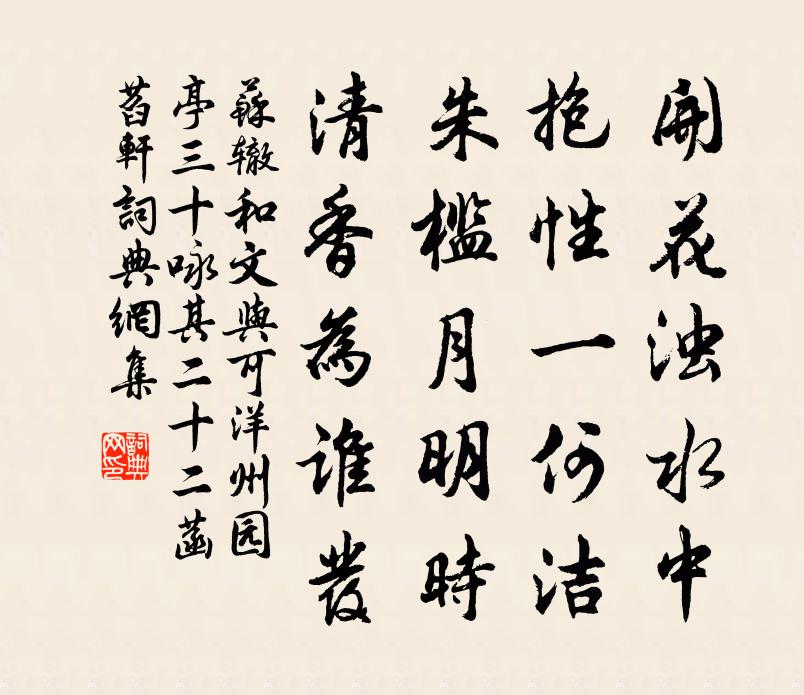 開花浊水中
抱性一何洁
朱檻月明時
清香為誰發
蘇辙和文與可洋州园
亭三十咏其二十二菡
萏軒詞典網集
詞典
网印